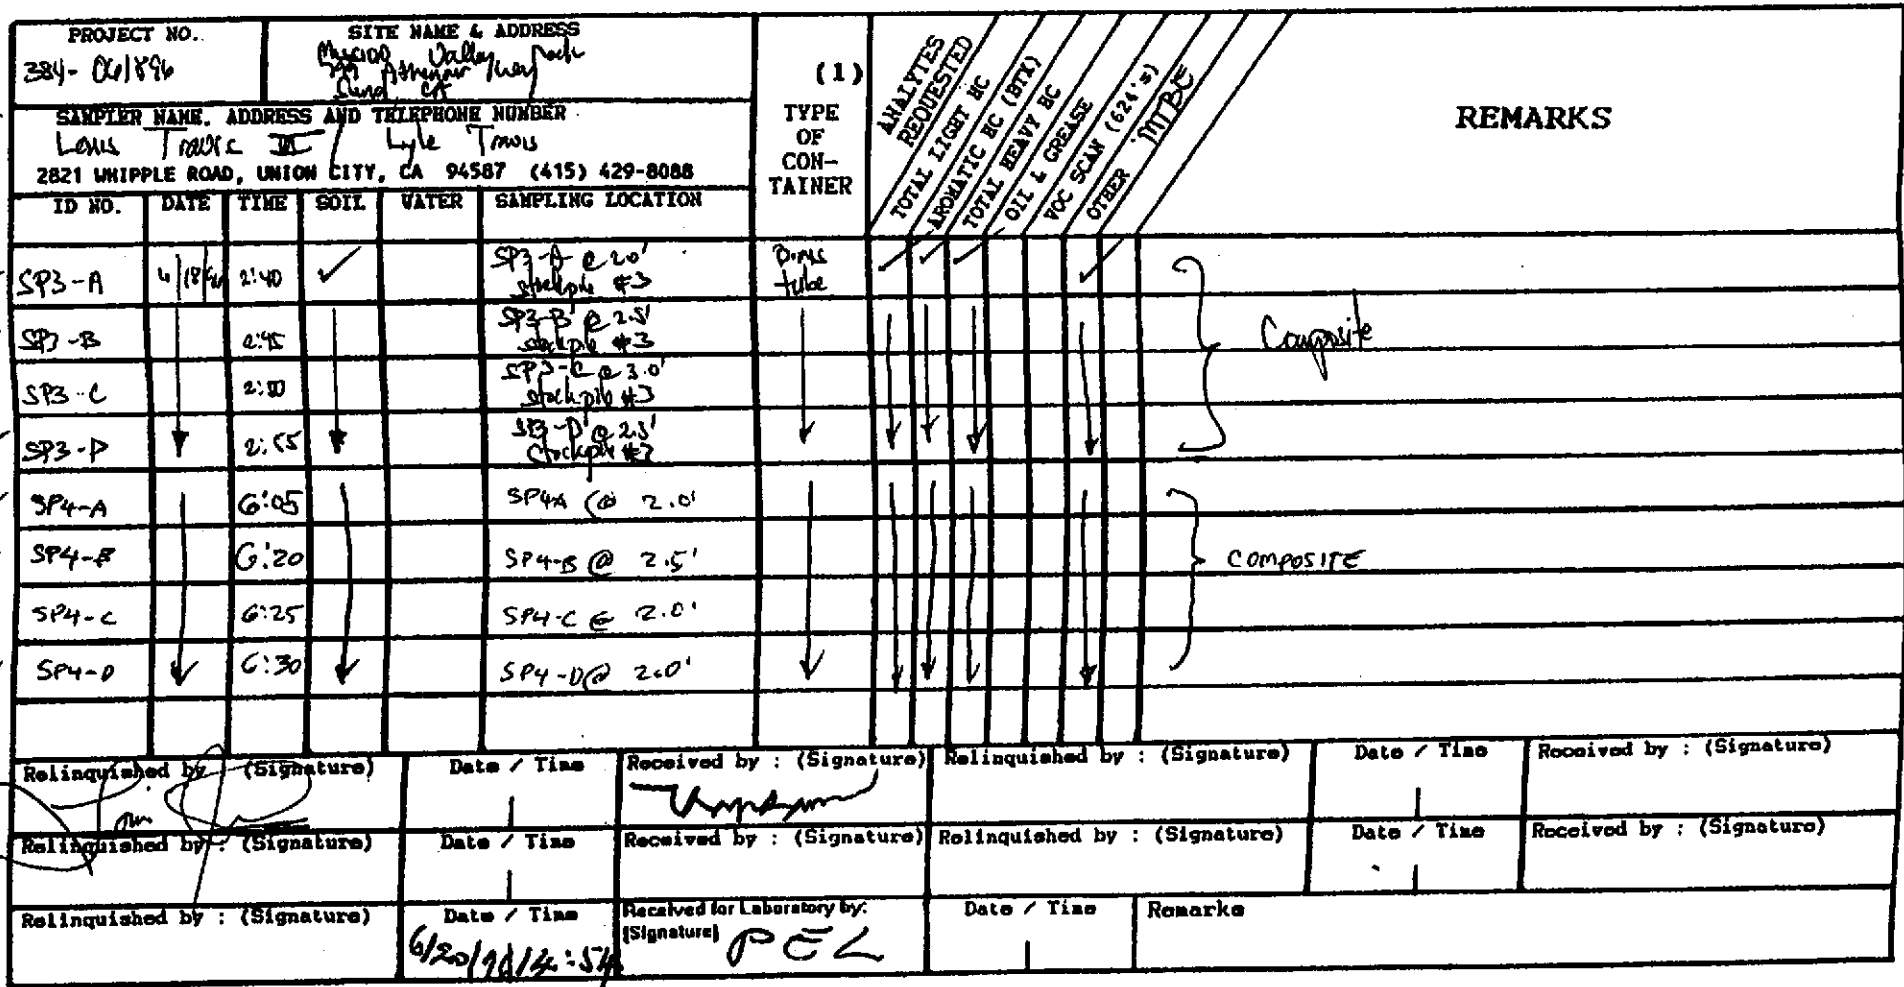 PROJECT NO.
384-061896
SITE NAME & ADDRESS
Mission Valley Rock
Athenour Way
Sunol CA
SAMPLER NAME, ADDRESS AND TELEPHONE NUMBER
Louis Travis III / Lyle Travis
2821 WHIPPLE ROAD, UNION CITY, CA 94587 (415) 429-8088
(1)
TYPE
OF
CON-
TAINER
ANALYTES
REQUESTED
TOTAL LIGHT HC
AROMATIC HC (BTX)
TOTAL HEAVY HC
OIL & GREASE
VOC SCAN (624's)
OTHER MTBE
REMARKS
ID NO. DATE TIME SOIL WATER SAMPLING LOCATION
SP3-A 6/18/96 2:40 ✓ SP3-A @ 2.0'
stockpile #3
Brass
tube
✓ ✓ ✓ ✓
SP3-B 2:45 SP3-B @ 2.5'
stockpile #3
Composite
SP3-C 2:50 SP3-C @ 3.0'
stockpile #3
SP3-D 2:55 SP3-D @ 2.5'
stockpile #3
SP4-A 6:05 SP4A @ 2.0'
SP4-B 6:20 SP4-B @ 2.5'
COMPOSITE
SP4-C 6:25 SP4-C @ 2.0'
SP4-D 6:30 SP4-D @ 2.0'
Relinquished by : (Signature) Date / Time Received by : (Signature) Relinquished by : (Signature) Date / Time Received by : (Signature)
Relinquished by : (Signature) Date / Time Received by : (Signature) Relinquished by : (Signature) Date / Time Received by : (Signature)
Relinquished by : (Signature) Date / Time Received for Laboratory by:
(Signature) Date / Time Remarks
PEL